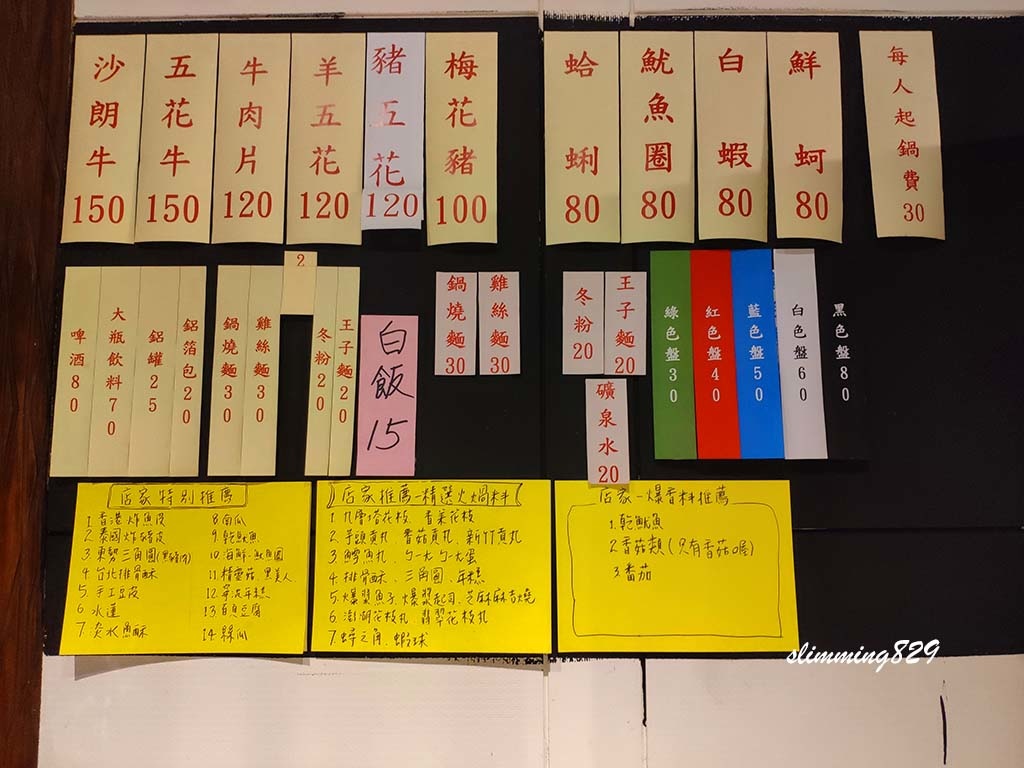 沙朗牛 150
五花牛 150
牛肉片 120
羊五花 120
豬五花 120
梅花豬 100
蛤蜊 80
魷魚圈 80
白蝦 80
鮮蚵 80
每人起鍋費 30
啤酒80
大瓶飲料70
鋁罐25
鋁箔包20
鍋燒麵30
雞絲麵30
2
冬粉20
王子麵20
白飯15
鍋燒麵30
雞絲麵30
冬粉20
王子麵20
礦泉水20
綠色盤30
紅色盤40
藍色盤50
白色盤60
黑色盤80
店家特別推薦
1.香港炸魚皮
2.泰國炸豬皮
3.東勢三角圓(黑豬肉)
4.台北排骨酥
5.手工豆皮
6.水蓮
7.淡水魚酥
8.南瓜
9.乾魷魚
10.海鮮.魷魚圈
11.精靈菇.黑美人
12.寧波年糕
13.百頁豆腐
14.絲瓜
店家推薦-精選火鍋料
1.九層塔花枝、香菜花枝
2.芋頭貢丸 番茄貢丸、新竹貢丸
3.鱈魚丸、ㄅㄧㄤˋㄅㄧㄤˋ蛋
4.排骨酥、三角圓、年糕
5.爆漿魚子、爆漿起司、芝麻麻吉燒
6.澎湖花枝丸 翡翠花枝丸
7.蝦之角、蝦球
店家-爆香料推薦
1.乾魷魚
2.香菇類(只有香菇喔)
3.番茄
slimming829